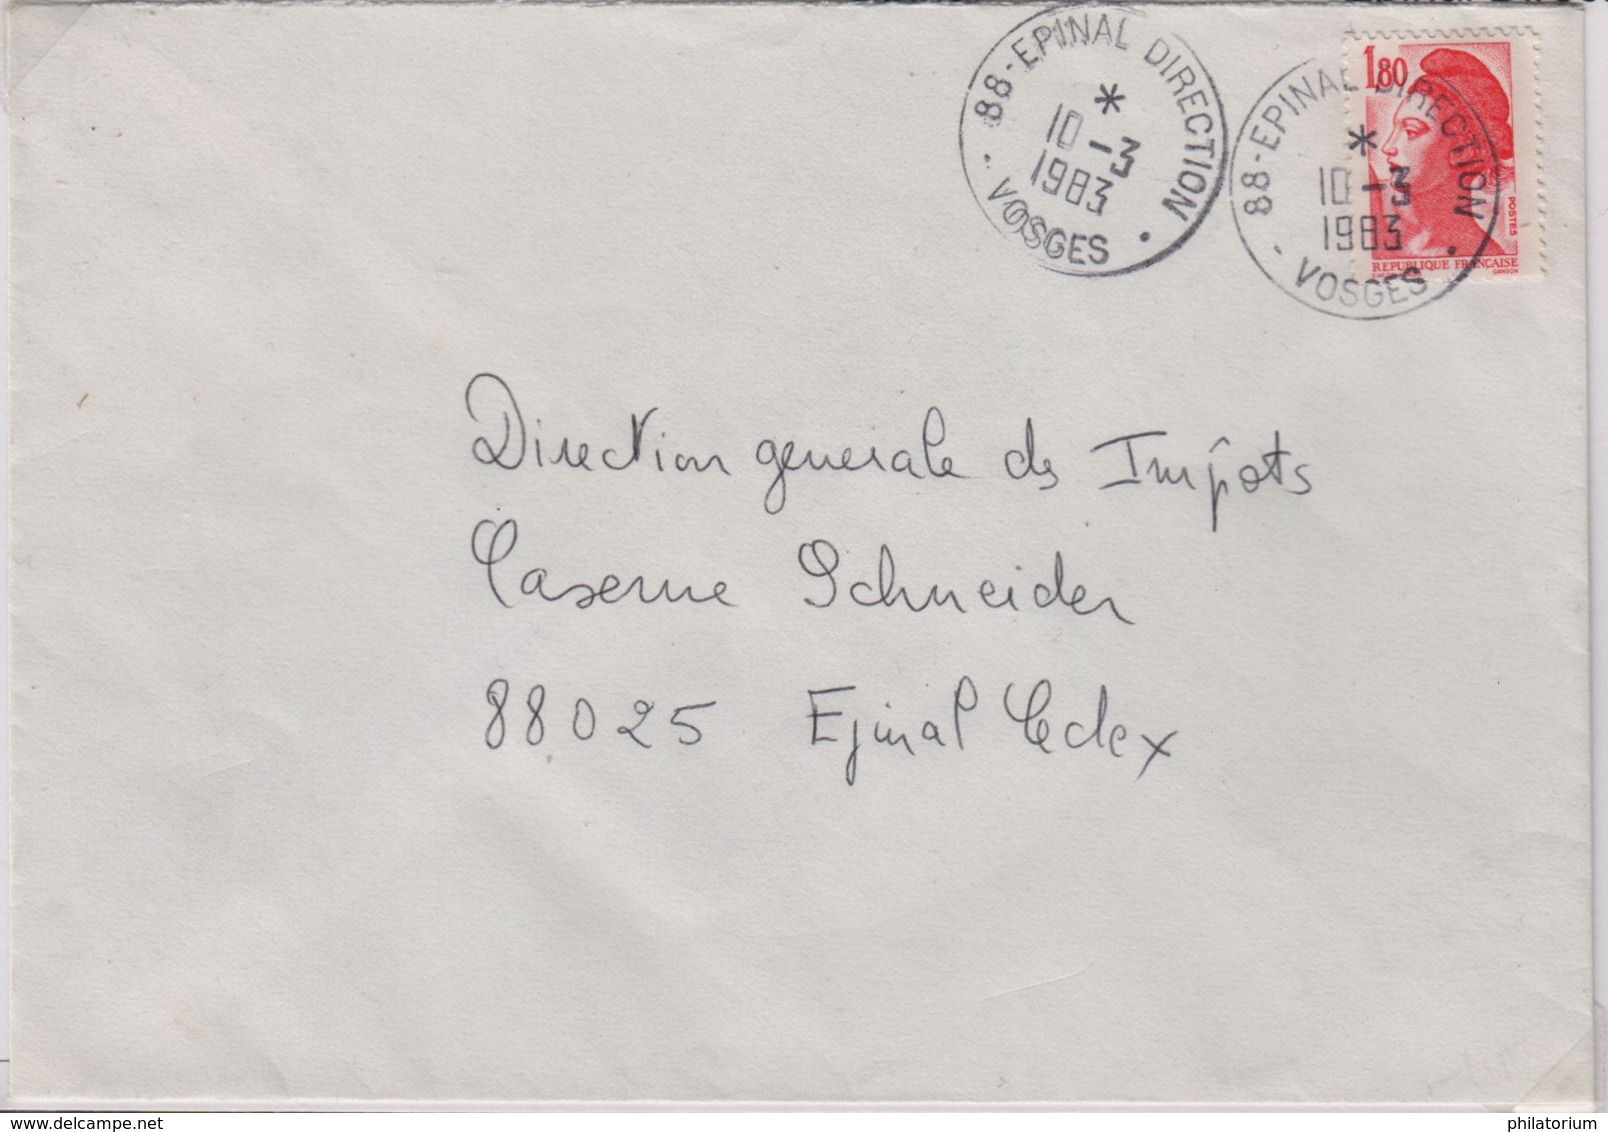 88-EPINAL DIRECTION
*
10 -3
1983
VOSGES
88-EPINAL DIRECTION
*
10 -3
1983
VOSGES
1,80
POSTES
REPUBLIQUE FRANÇAISE
GANDON
Direction generale des Impôts
Caserne Schneider
88025 Epinal Cedex
delcampe.net
philatorium